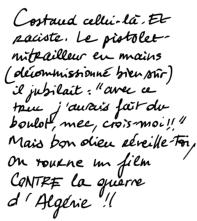 Costaud celui-là. Et
raciste. Le pistolet-
mitrailleur en mains
(décommissionné bien sûr)
il jubilait : "avec ce
truc j'aurais fait du
boulot, mec, crois-moi !!"
Mais bon dieu réveille-toi,
on tourne un film
CONTRE la guerre
d'Algérie !!